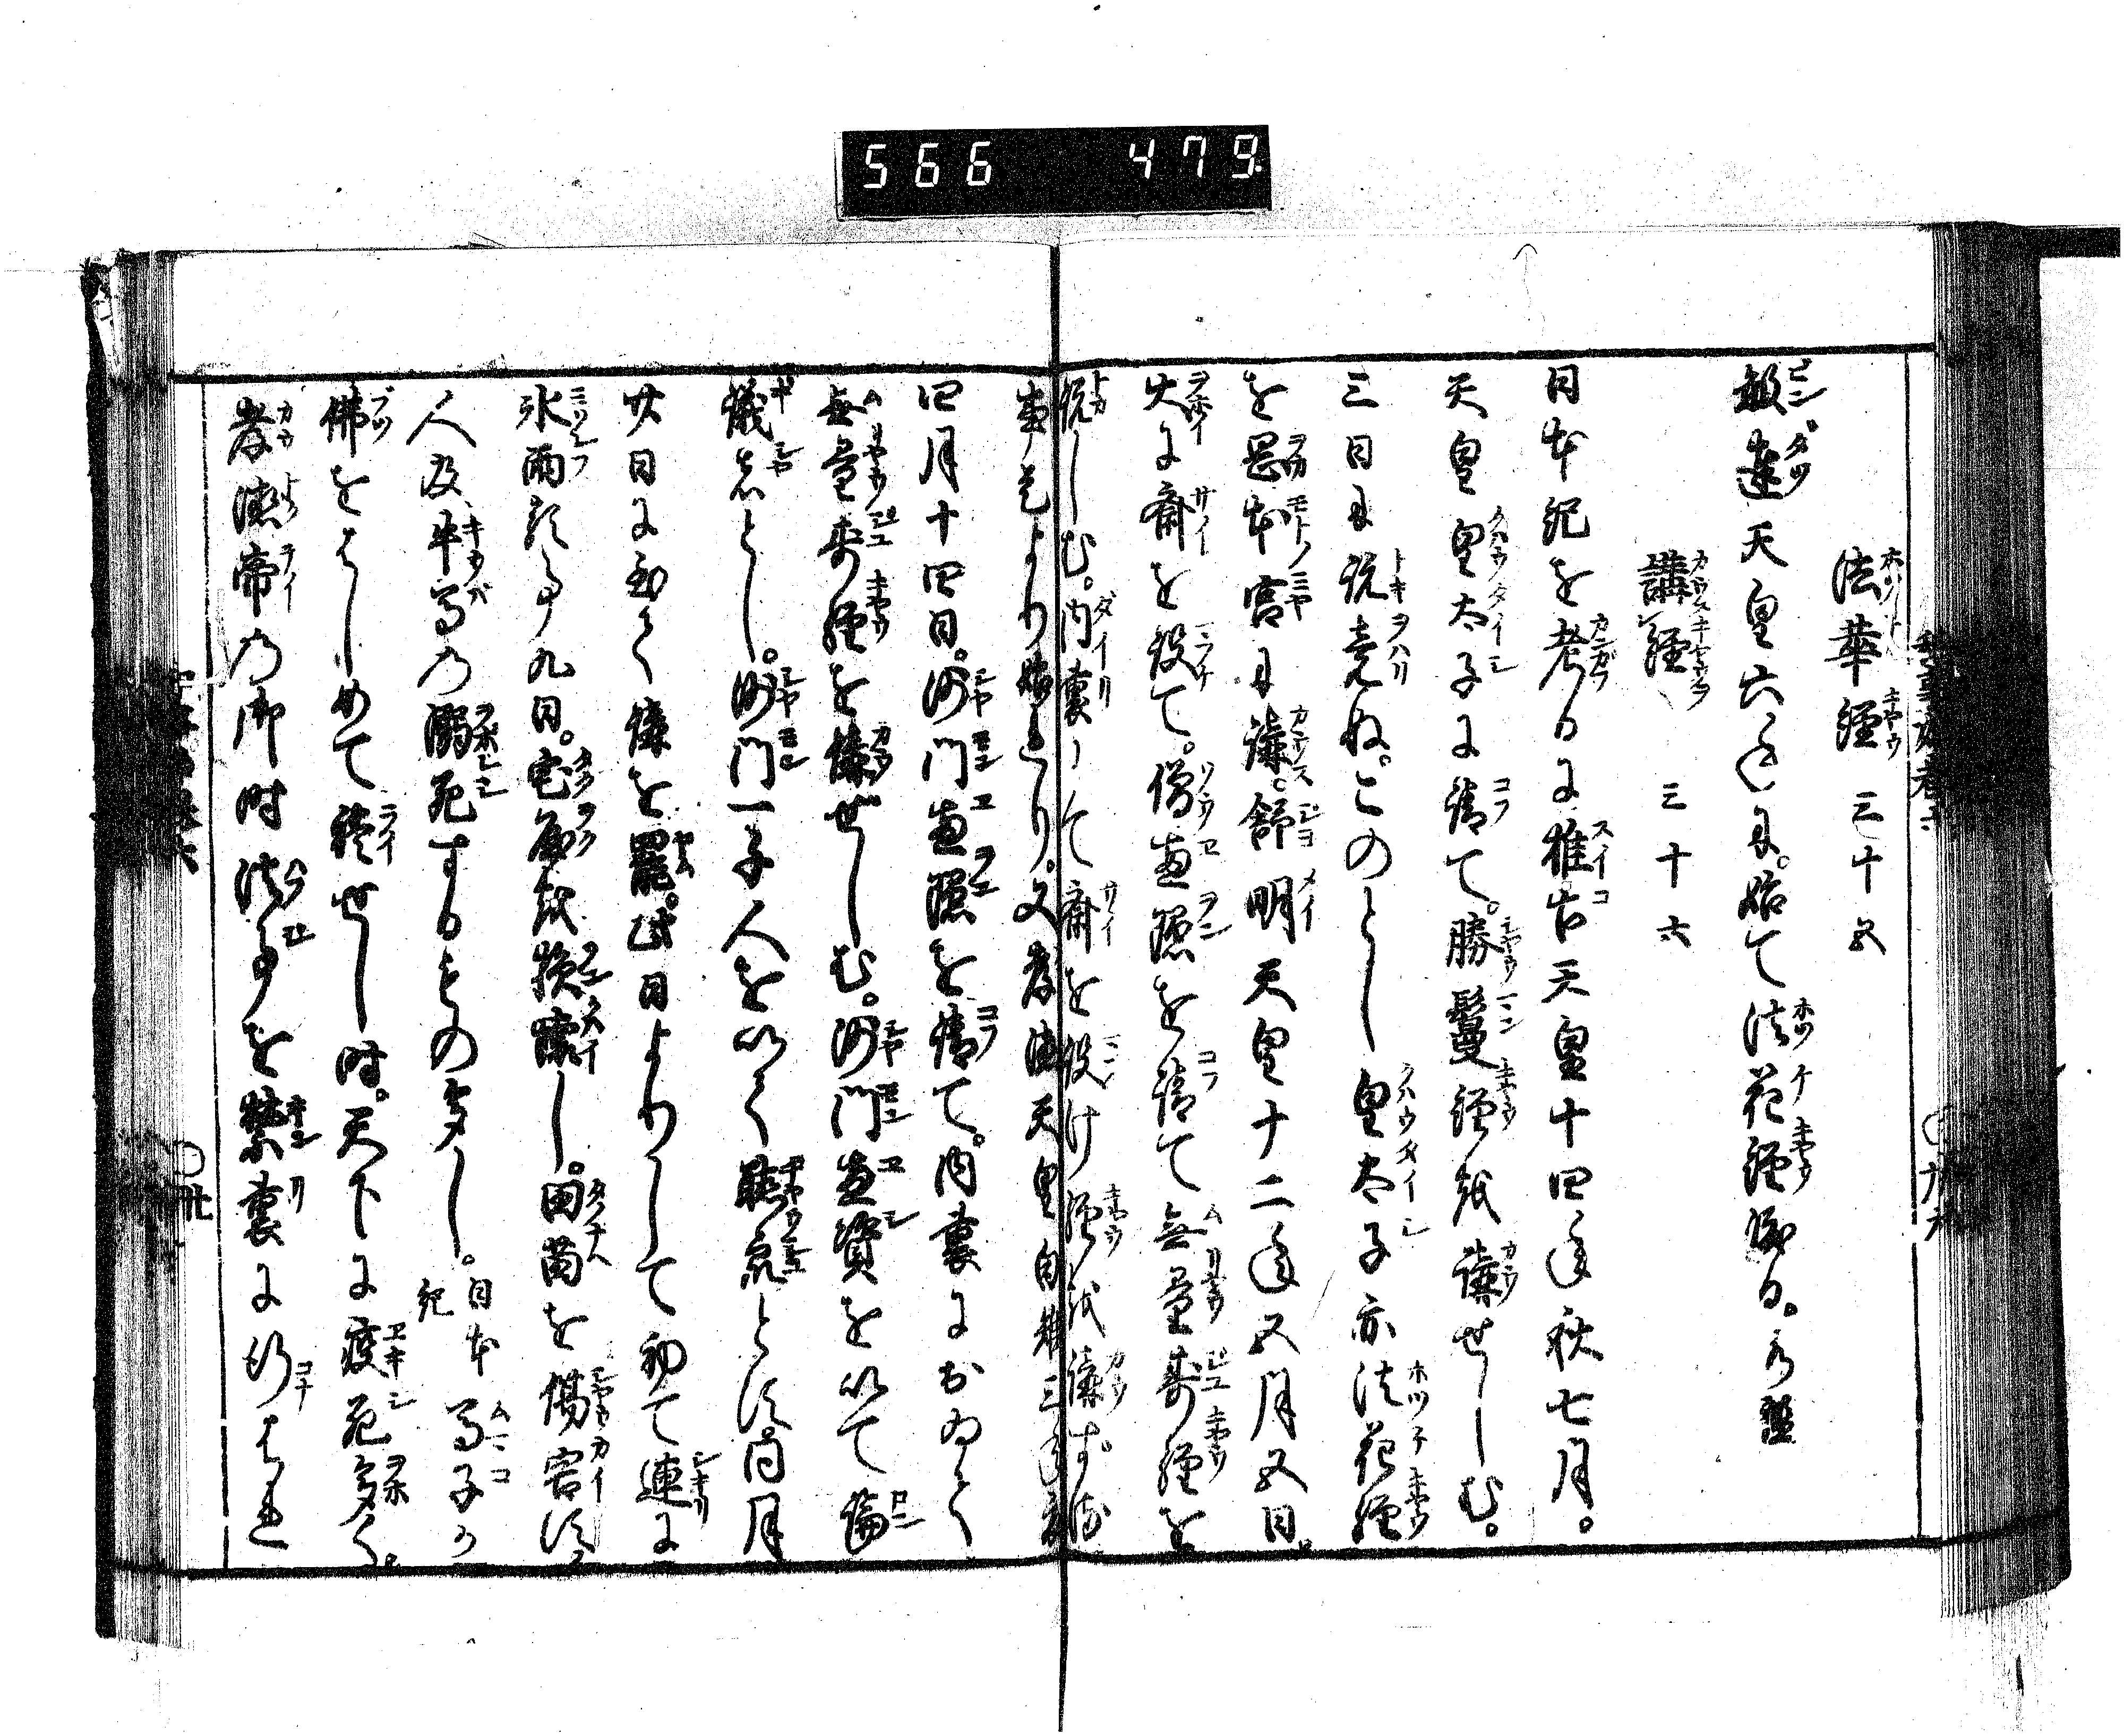 566 479
法華経 三十五
敏達天皇六年に。始て法花経渡る。
講経 三十六
日本紀を考るに推古天皇十四年秋七月。
天皇皇太子に請て。勝鬘経を講せしむ。
三日に説竟ぬ。このとし皇太子亦法花経
を岡本宮に講。舒明天皇十二年五月五日。
大に斎を設て。僧恵隠を請て無量寿経を
説しむ。内裏にて斎を設け経を講ずる
事是より始れり。又孝徳天皇白雉三年
四月十四日。沙門恵隠を請て。内裏におゐて
無量寿経を講ぜしむ。沙門恵資を以て論
議者とし。沙門一千人を以て聴衆とす。同月
廿日に至て講を罷。此日よりして初て連に
氷雨ふる事九日。宅屋を損壊し。田苗を傷害す。
人及牛馬の溺死するもの多し。日本紀 馬子か
佛をはしめて礼せし時。天下に疫死多く。
孝徳帝の御時法事を禁裏に行はれ